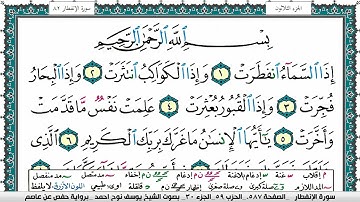 الجزء الثلاثون
سورة الإنفطار ٨٢
بِسْمِ ٱللَّهِ ٱلرَّحْمَٰنِ ٱلرَّحِيمِ
إِذَا ٱلسَّمَآءُ ٱنفَطَرَتْ ١ وَإِذَا ٱلْكَوَاكِبُ ٱنتَثَرَتْ ٢ وَإِذَا ٱلْبِحَارُ
فُجِّرَتْ ٣ وَإِذَا ٱلْقُبُورُ بُعْثِرَتْ ٤ عَلِمَتْ نَفْسٌ مَّا قَدَّمَتْ
وَأَخَّرَتْ ٥ يَٰٓأَيُّهَا ٱلْإِنسَٰنُ مَا غَرَّكَ بِرَبِّكَ ٱلْكَرِيمِ ٦ ٱلَّذِى
سورة الإنفطار الصفحة ٥٨٧ الحزب ٥٩ الجزء ٣٠ بصوت الشيخ يوسف نوح احمد برواية حفص عن عاصم